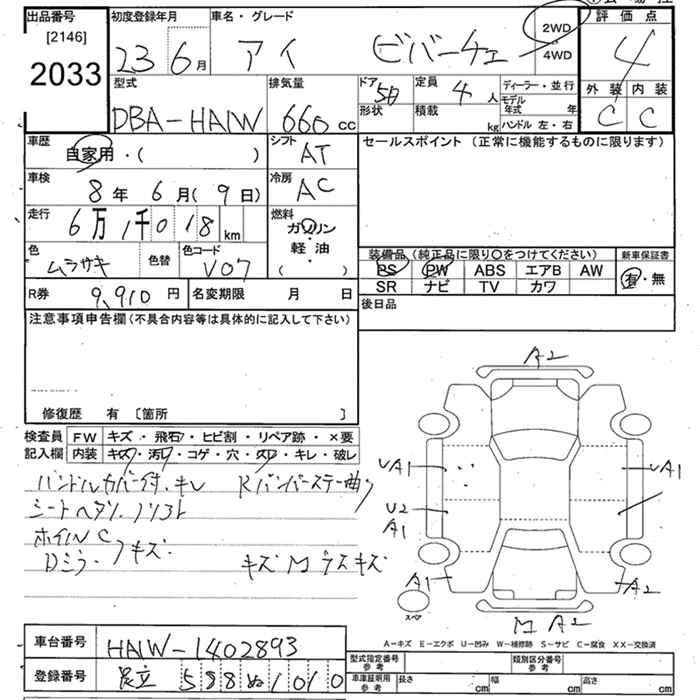 出品番号 初度登録年月 車名・グレード 評価点
[2146] 23 6月 アイ ビバーチェ 2WD・4WD 4
2033
型式 排気量 ドア 定員 ディーラー・並行 外装 内装
DBA-HA1W 660cc 5D 4人 モデル年式 年 C C
形状 積載 kg ハンドル 左・右
車歴 自家用・( ) シフト AT セールスポイント (正常に機能するものに限ります)
車検 8年 6月(9日) 冷房 AC
走行 6万1千018km 燃料 ガソリン・軽油・( )
色 ムラサキ 色替 色コード V07 装備品 (純正品に限り○をつけてください) 新車保証書
PS PW ABS エアB AW 有・無
R券 9,910円 名変期限 月 日 SR ナビ TV カワ
注意事項申告欄(不具合内容等は具体的に記入して下さい) 後日品
修復歴 有 〔箇所 〕
検査員 FW キズ・飛石・ヒビ割・リペア跡・×要
記入欄 内装 キズ・汚レ・コゲ・穴・スレ・キレ・破レ
ハンドルカバー付、キレ Rバンパーステー曲り
シートヘタリ、ソリスト
ホイルC
Dミラーキズ キズ M ラスキズ
A2
UA1 UA1
U2
A1
A1 A2
スペア
M A2
A−キズ E−エクボ U−凹み W−補修跡 S−サビ C−腐食 XX−交換済
車台番号 HA1W-1402893 型式指定番号 参考 類別区分番号 参考
登録番号 足立 588 ぬ 1010 車庫証明用 参考 長さ cm 幅 cm 高さ cm